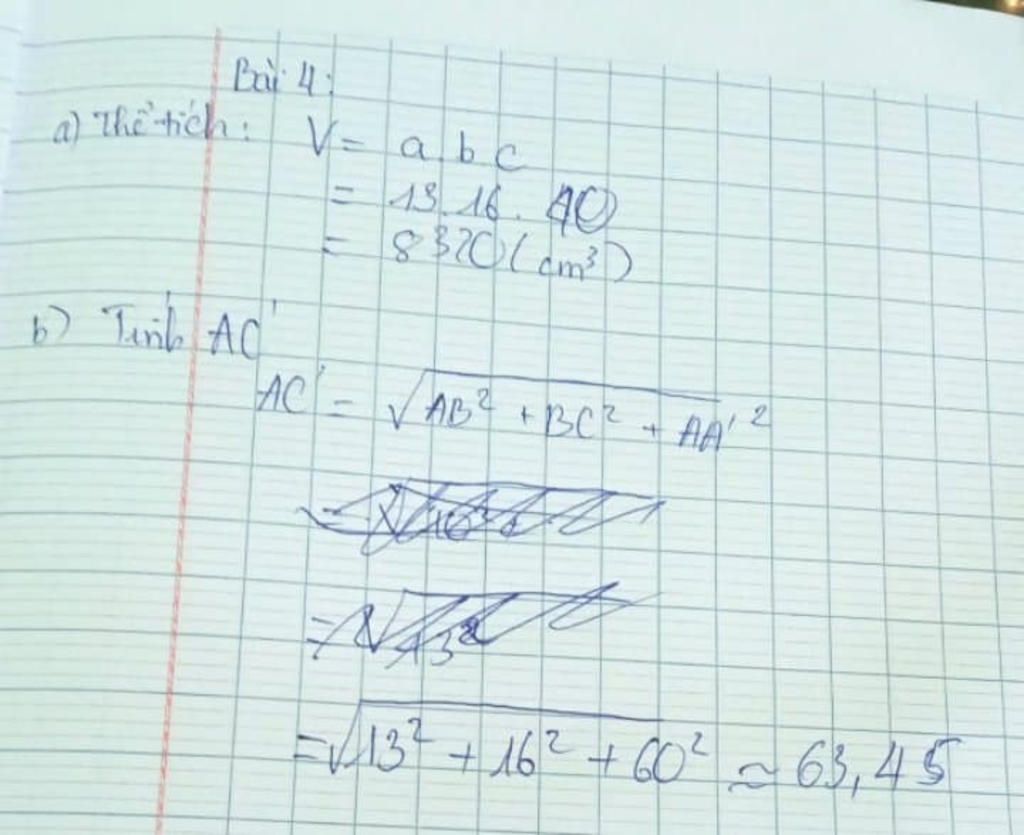 Bài 4:
a) Thể tích: V = a.b.c
= 13.16.40
= 8320 (cm³)
b) Tính AC'
AC' = √AB² + BC² + AA'²
= √13² + 16² + 60² ≈ 63,45